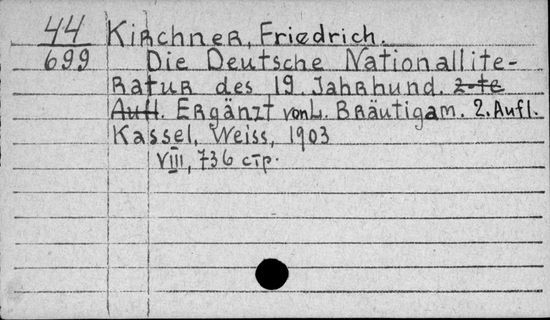 44 Kirchner, Friedrich.
699 Die Deutsche Nationallite-
ratur des 19. Jahrhund. 2-te
Aufl. Ergänzt von L. Bräutigam. 2. Aufl.
Kassel, Weiss, 1903
VIII, 736 стр.